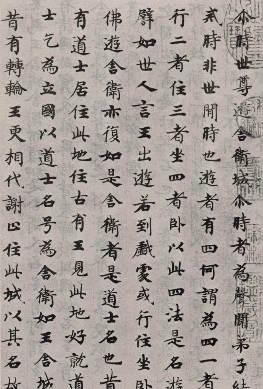 尒時世尊遊舍衛城尒時者為聲聞弟子結
戒時非世間時也遊者有四何謂為四一者
行二者住三者坐四者卧以此四法是名遊
譬如世人言王出遊若到戲處或行住坐卧
佛遊舍衛亦復如是舍衛者是道士名也昔
有道士居住此地古有王見此地好就道
士乞為立國以道士名号為舍衛如王舍城
昔有轉輪王更相代謝止住此城以其名故